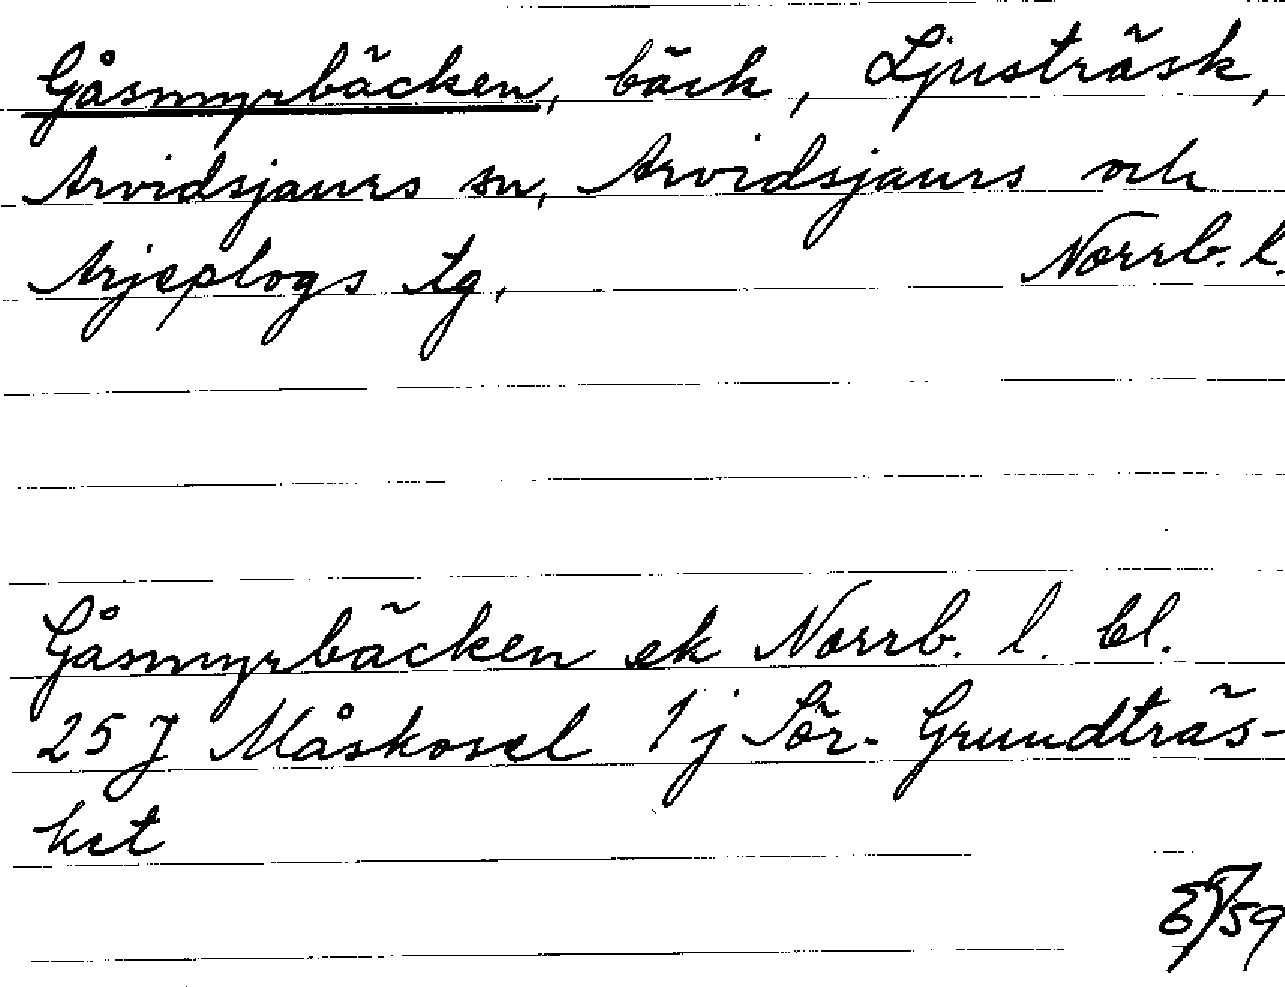 Gåsmyrbäcken, bäck, Ljusträsk,
Arvidsjaurs sn, Arvidsjaurs och
Arjeplogs tg, Norrb. l.
Gåsmyrbäcken ek Norrb. l. bl.
25 J Måskosel 1 j Sör- Grundträs-
ket